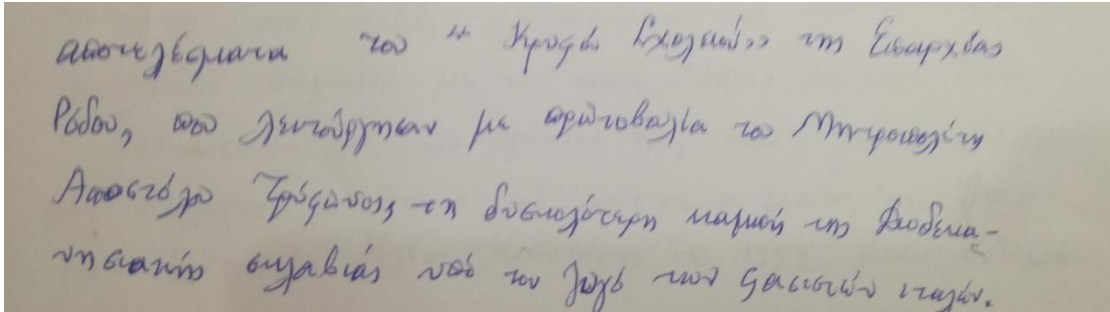 αποτελέσματα του "Κρυφού Σχολειού» της Επαρχίας
Ρόδου, που λειτούργησαν με πρωτοβουλία του Μητροπολίτη
Αποστόλου Τρύφωνος, τη δυσκολότερη καμπή της Δωδεκα-
νησιακής σκλαβιάς υπό τον ζυγό των φασιστών ιταλών.